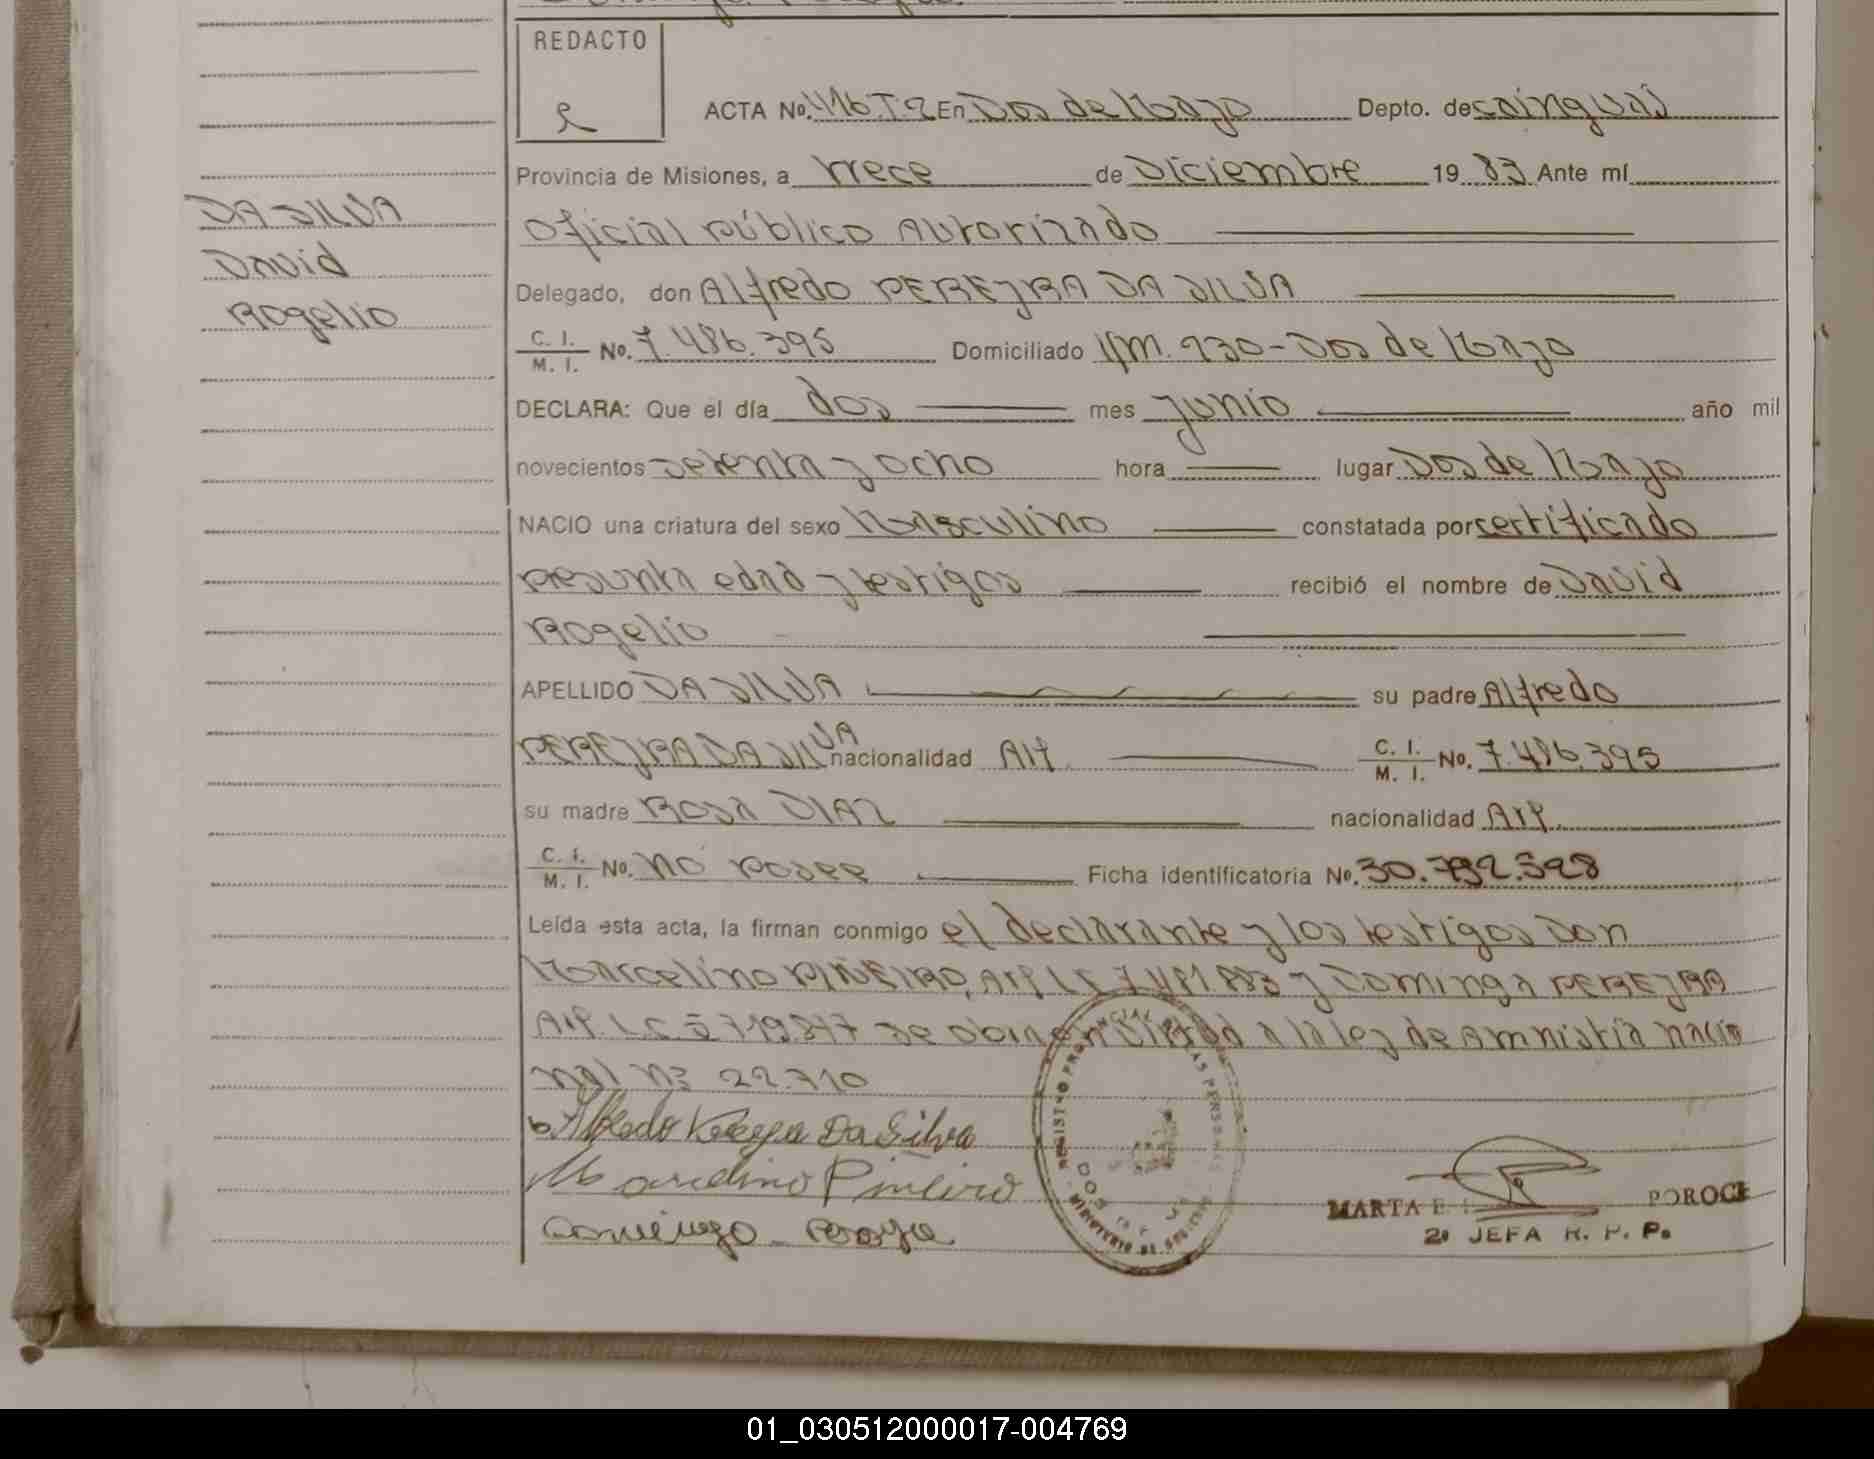 REDACTO
ACTA No. 416.T.2 En Dos de Mayo Depto. de Cainguas
Provincia de Misiones, a trece de Diciembre 19 83 Ante mí
DA SILVA
Oficial Público Autorizado
David
Delegado, don Alfredo PEREYRA DA SILVA
Rogelio
C. I. M. I. No. 7.486.395 Domiciliado Km. 230-Dos de Mayo
DECLARA: Que el día dos mes junio año mil
novecientos setenta y ocho hora lugar Dos de Mayo
NACIO una criatura del sexo Masculino constatada por certificado
presunta edad y testigos recibió el nombre de David
Rogelio
APELLIDO DA SILVA su padre Alfredo
PEREYRA DA SILVA nacionalidad Arg. C. I. M. I. No. 7.486.395
su madre Rosa DIAZ nacionalidad Arg.
C. I. M. I. No. no posee Ficha identificatoria No. 30.792.328
Leída esta acta, la firman conmigo el declarante y los testigos Don
Marcelino PIÑEIRO, Arg L.E 7.481.883 y Dominga PEREYRA
Arg. L.C. 5.719.877 de la ley de Amnistía nacio
nal nº 22.710
Alfredo Pereyra Da Silva
Marcelino Piñeiro
REGISTRO PROVINCIAL DE LAS PERSONAS
MARTA E. POROCK
2ª JEFA R. P. P.
01_030512000017-004769